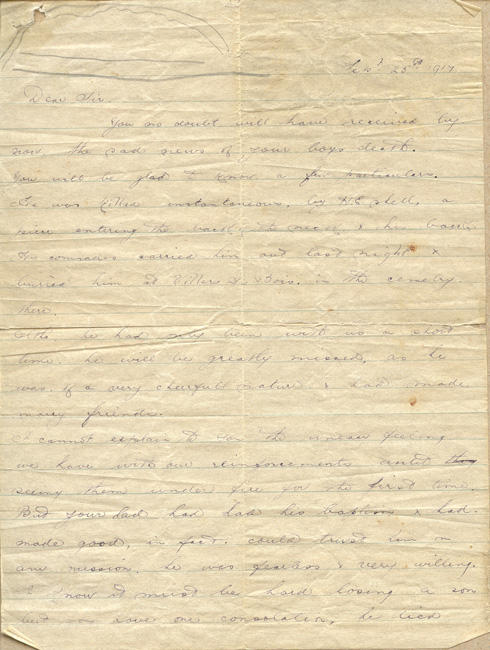 Sept 25th 1917
Dear Sir.
You no doubt will have received by
now the sad news of your boys death.
You will be glad to know a few particulars.
He was killed instantaneous, by H.E shell, a
piece entering the back of the neck & his back.
His comrades carried him out last night &
buried him at Villers Bois. in the cemetry
there.
Altho he had only been with us a short
time. he will be greatly missed, as he
was of a very cheerfull nature & had made
many friends.
I cannot explain to you the uneasy feeling
we have with our reinforcements until
seeing them under fire for the first time.
But your lad had had his baptism & had
made good, in fact. could trust him on
any mission. he was fearless & very willing.
I know it must be hard losing a son
but you have one consolation, he died